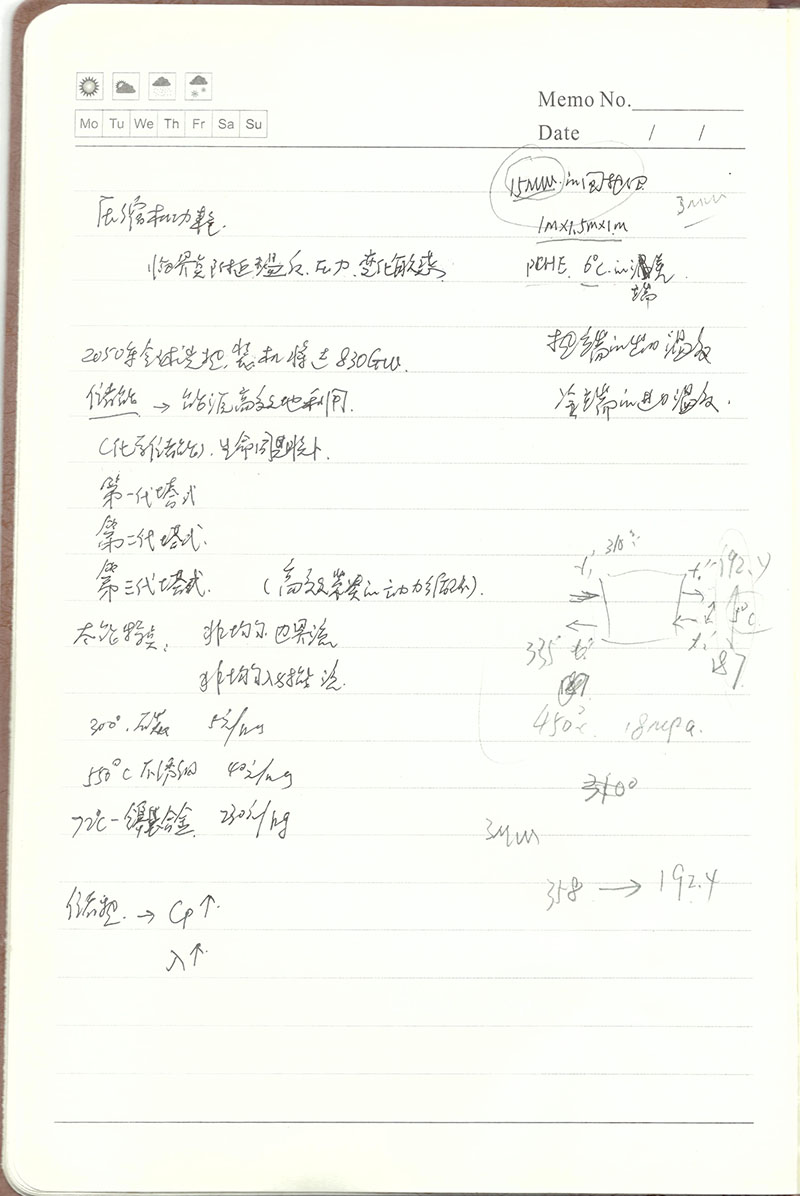 Memo No.
Mo Tu We Th Fr Sa Su
Date / /
15MW 的回热器
3MW
压缩机功耗.
1m×1.5m×1m
临界点附近温度.压力.变化敏感
PCHE. 6℃.的温
端
2050年全球光热.装机将达830GW.
热端的出口温度
储能 → 能源高效地利用.
冷端的进口温度.
(化学储能).
第一代塔式
第二代塔式.
第三代塔式. (高效紧凑的动力
310°
t₁' t₁'' 192.4
5℃
335° t₂'' t₂' 187
太能特点: 非均匀 边界
非均匀
300°. 5元/kg
450℃ 18mpa.
550°C 不锈钢 40元/kg
3100
72℃-镍基合金 230元/kg
3MW
358 → 192.4
储热. → Cp↑.
λ↑